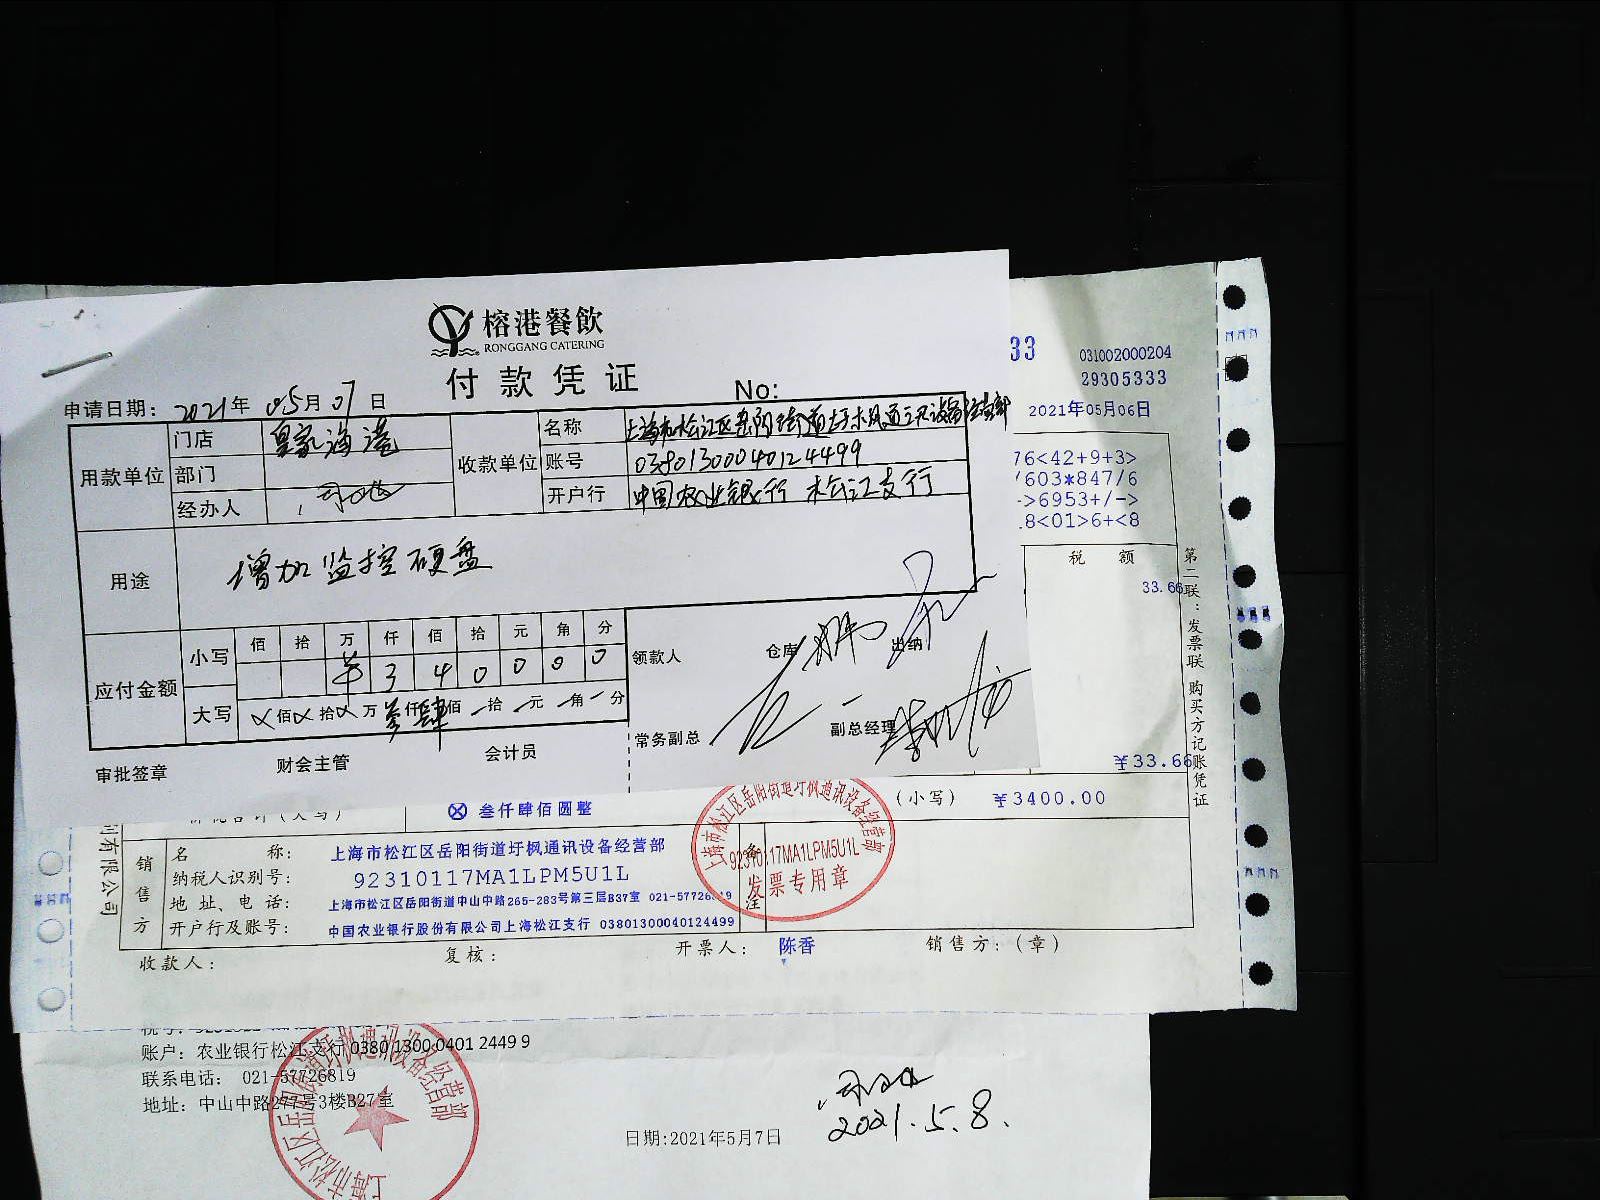 榕港餐飲
RONGGANG CATERING
付款凭证
No:
申请日期: 2021年 05月 07日
用款单位
门店 皇家海港
部门
经办人
收款单位
名称 上海市松江区岳阳街道圩枫通讯设备经营部
账号 03801300040124499
开户行 中国农业银行 松江支行
用途
增加监控硬盘
应付金额
小写
佰 拾 万 仟 佰 拾 元 角 分
羊 3 4 0 0 0 0
大写
佰 拾 万 叁仟 肆佰 拾 元 角 分
领款人 仓库 出纳
常务副总 副总经理
审批签章 财会主管 会计员
33
031002000204
29305333
2021年05月06日
76<42+9+3>
/603*847/6
->6953+/->
8<01>6+<8
税 额
33.66
¥33.66
第二联：发票联 购买方记账凭证
叁仟肆佰圆整
(小写) ¥3400.00
有限公司
销售方
名 称: 上海市松江区岳阳街道圩枫通讯设备经营部
纳税人识别号: 92310117MA1LPM5U1L
地 址、电 话: 上海市松江区岳阳街道中山中路265-283号第三层B37室 021-57726819
开户行及账号: 中国农业银行股份有限公司上海松江支行 03801300040124499
备注
上海市松江区岳阳街道圩枫通讯设备经营部
92310117MA1LPM5U1L
发票专用章
收款人: 复核: 开票人: 陈香 销售方: (章)
账户: 农业银行松江支行 0380 1300 0401 2449 9
联系电话: 021-57726819
地址: 中山中路277号3楼B27室
上海市松江区岳阳街道圩枫通讯设备经营部
日期:2021年5月7日
2021.5.8.